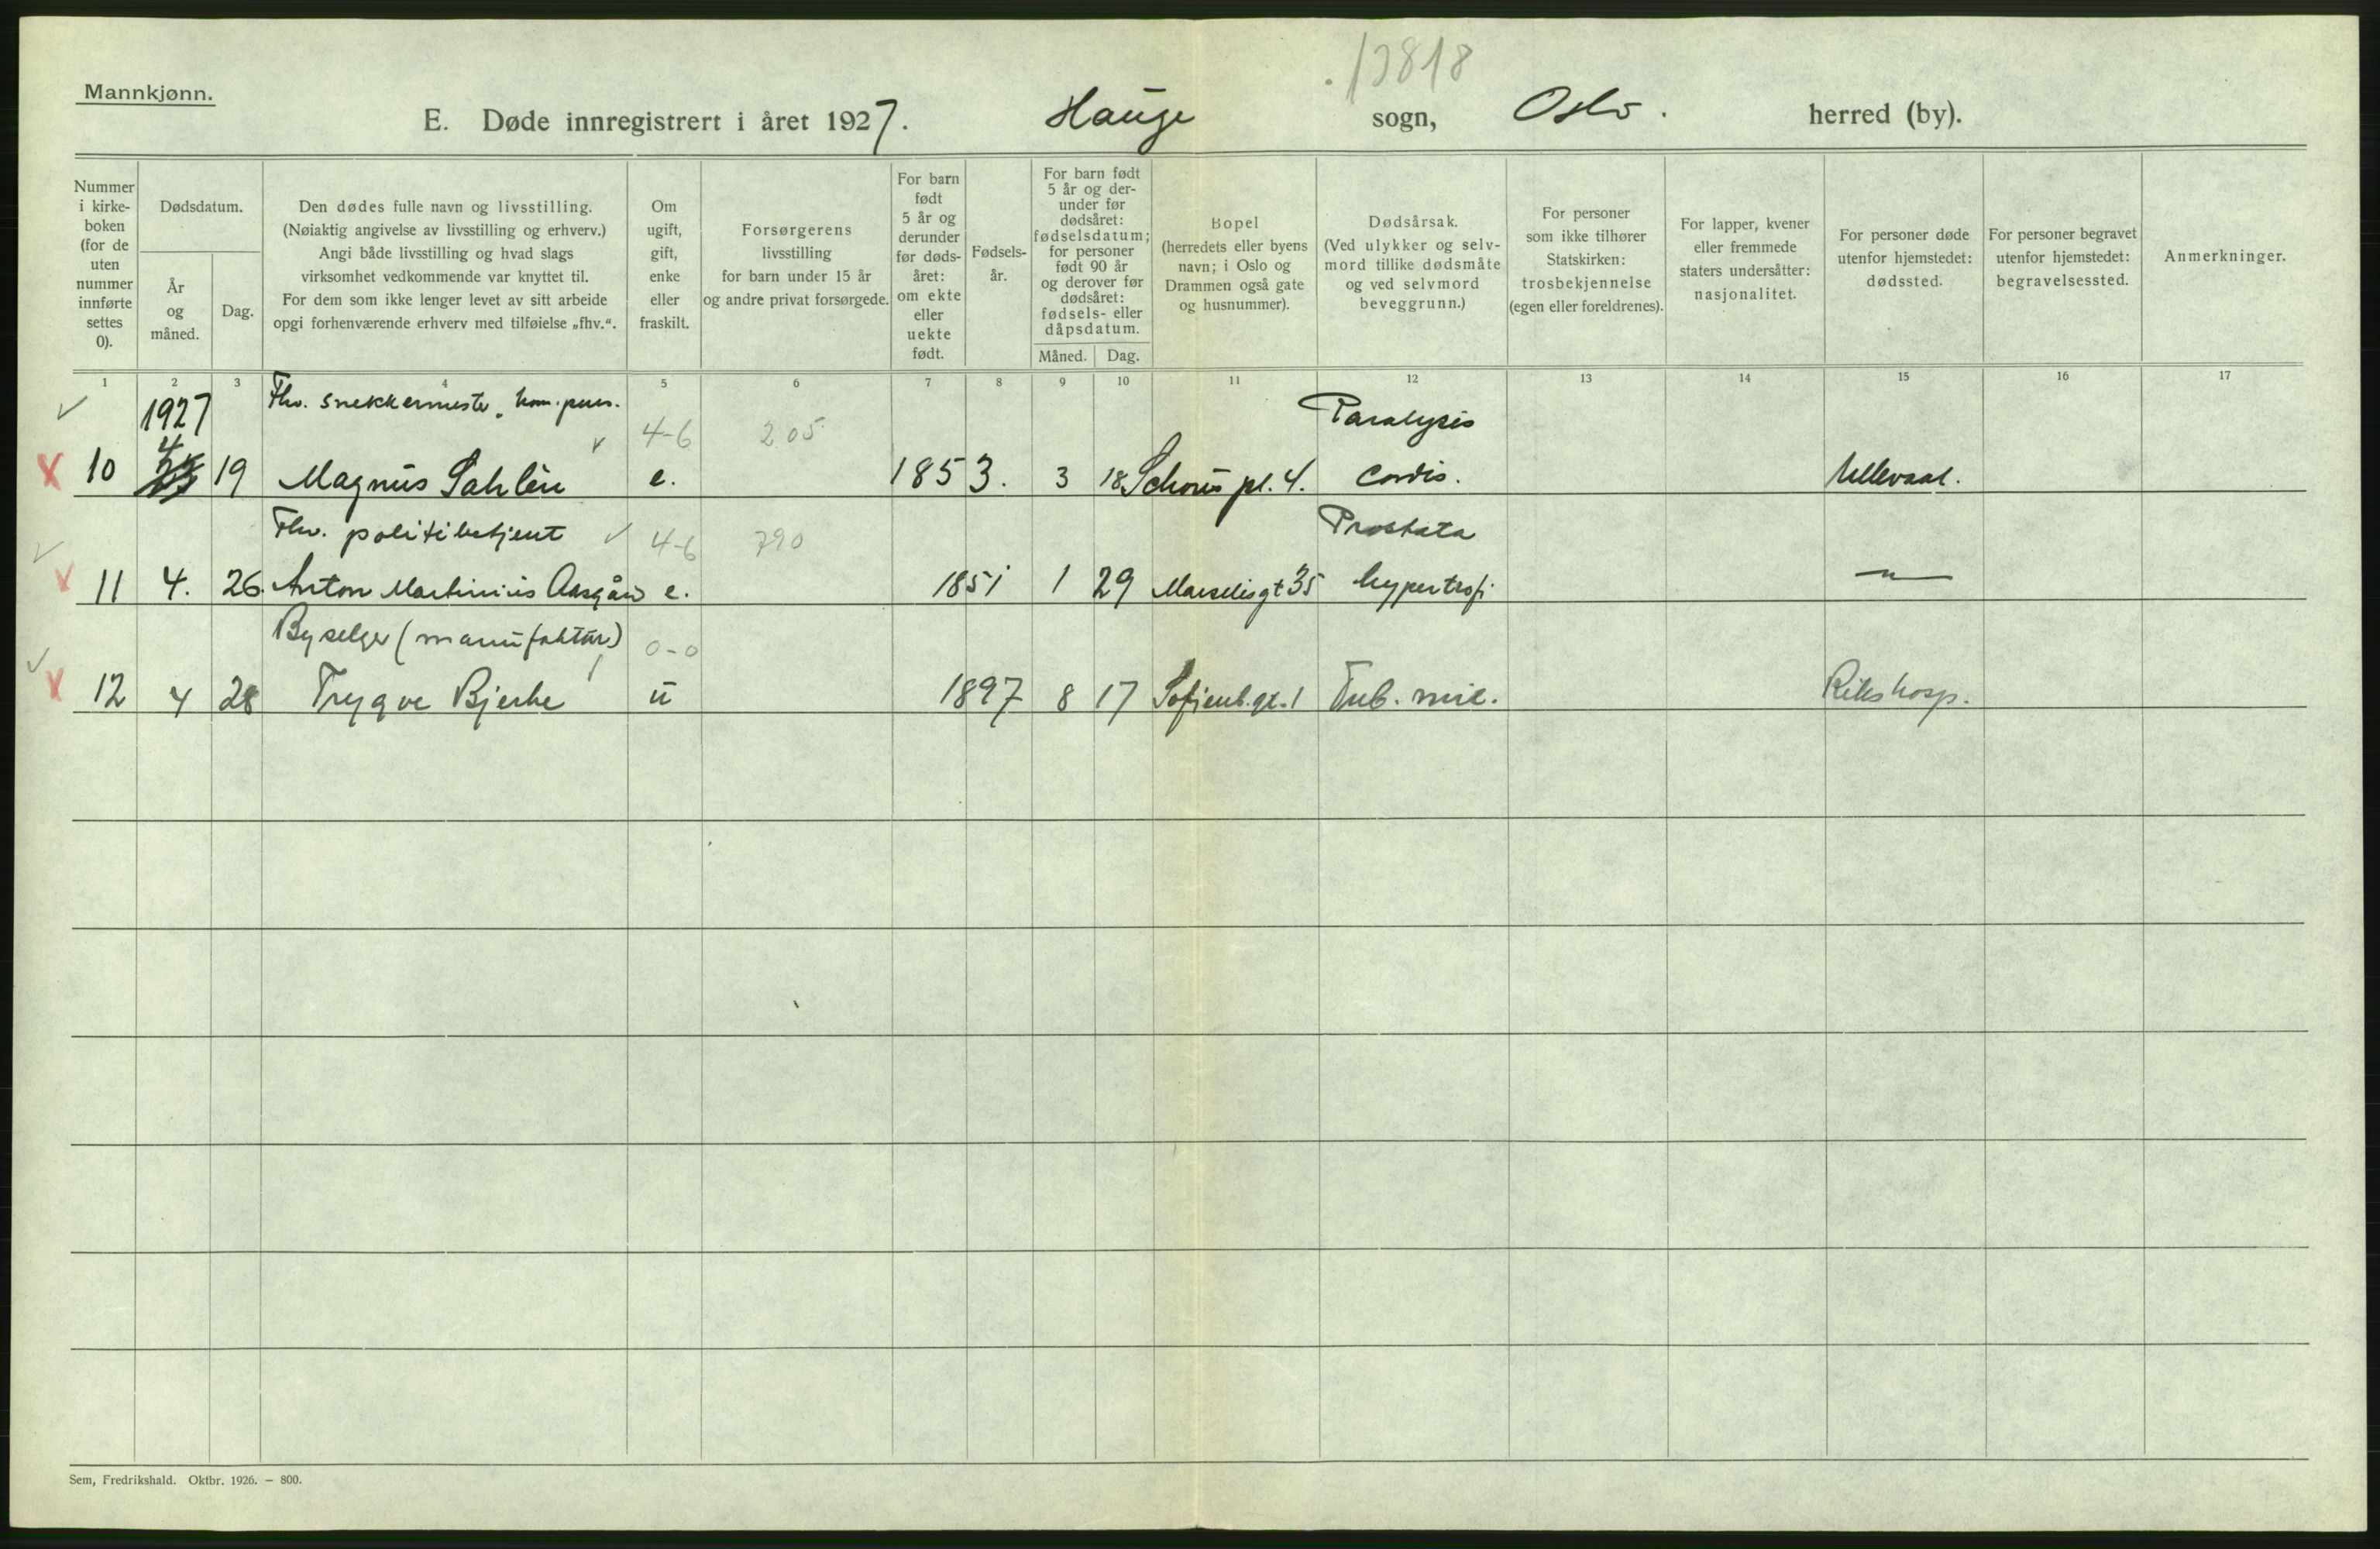 .13818
Mannkjønn.
E. Døde innregistrert i året 1927. Hauge sogn, Oslo. herred (by).
Nummer i kirke-boken (for de uten nummer innførte settes 0).
Dødsdatum.
År og måned.
Dag.
Den dødes fulle navn og livsstilling.
(Nøiaktig angivelse av livsstilling og erhverv.)
Angi både livsstilling og hvad slags
virksomhet vedkommende var knyttet til.
For dem som ikke lenger levet av sitt arbeide
opgi forhenværende erhverv med tilføielse „fhv.“.
Om ugift, gift, enke eller fraskilt.
Forsørgerens
livsstilling
for barn under 15 år
og andre privat forsørgede.
For barn født 5 år og derunder før døds-året: om ekte eller uekte født.
Fødsels-år.
For barn født 5 år og der-under før dødsåret: fødselsdatum; for personer født 90 år og derover før dødsåret: fødsels- eller dåpsdatum.
Måned. Dag.
Bopel
(herredets eller byens
navn; i Oslo og
Drammen også gate
og husnummer).
Dødsårsak.
(Ved ulykker og selv-
mord tillike dødsmåte
og ved selvmord
beveggrunn.)
For personer
som ikke tilhører
Statskirken:
trosbekjennelse
(egen eller foreldrenes).
For lapper, kvener
eller fremmede
staters undersåtter:
nasjonalitet.
For personer døde
utenfor hjemstedet:
dødssted.
For personer begravet
utenfor hjemstedet:
begravelsessted.
Anmerkninger.
1 2 3 4 5 6 7 8 9 10 11 12 13 14 15 16 17
1927 Fhv. snekkermester, kom. pens. 4-6 205 Paralysis
10 4 19 Magnus Sahlén e. 1853. 3 18 Schous pl. 4. Cordis. Ullevaal.
Fhv. politibetjent 4-6 790 Prostata
11 4. 26. Anton Martinius Aasgård e. 1851 1 29 Marselisgt 35 hypertrofi — " —
Byselger (manufaktur) 0-0
12 4 28 Trygve Bjerke u 1897 8 17 Sofienb.gt. 1 Tub. mil. Rikshosp.
Sem, Fredrikshald. Oktbr. 1926. – 800.